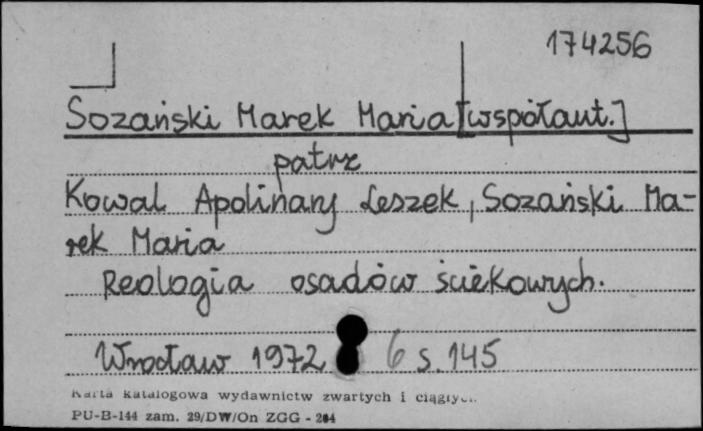 174256
Sozański Marek Maria [współaut.]
patrz
Kowal Apolinary Leszek, Sozański Ma-
rek Maria
Reologia osadów ściekowych.
Wrocław 1972 6 s. 145
Karta katalogowa wydawnictw zwartych i ciągłych
PU-B-144 zam. 29/DW/On ZGG - 284